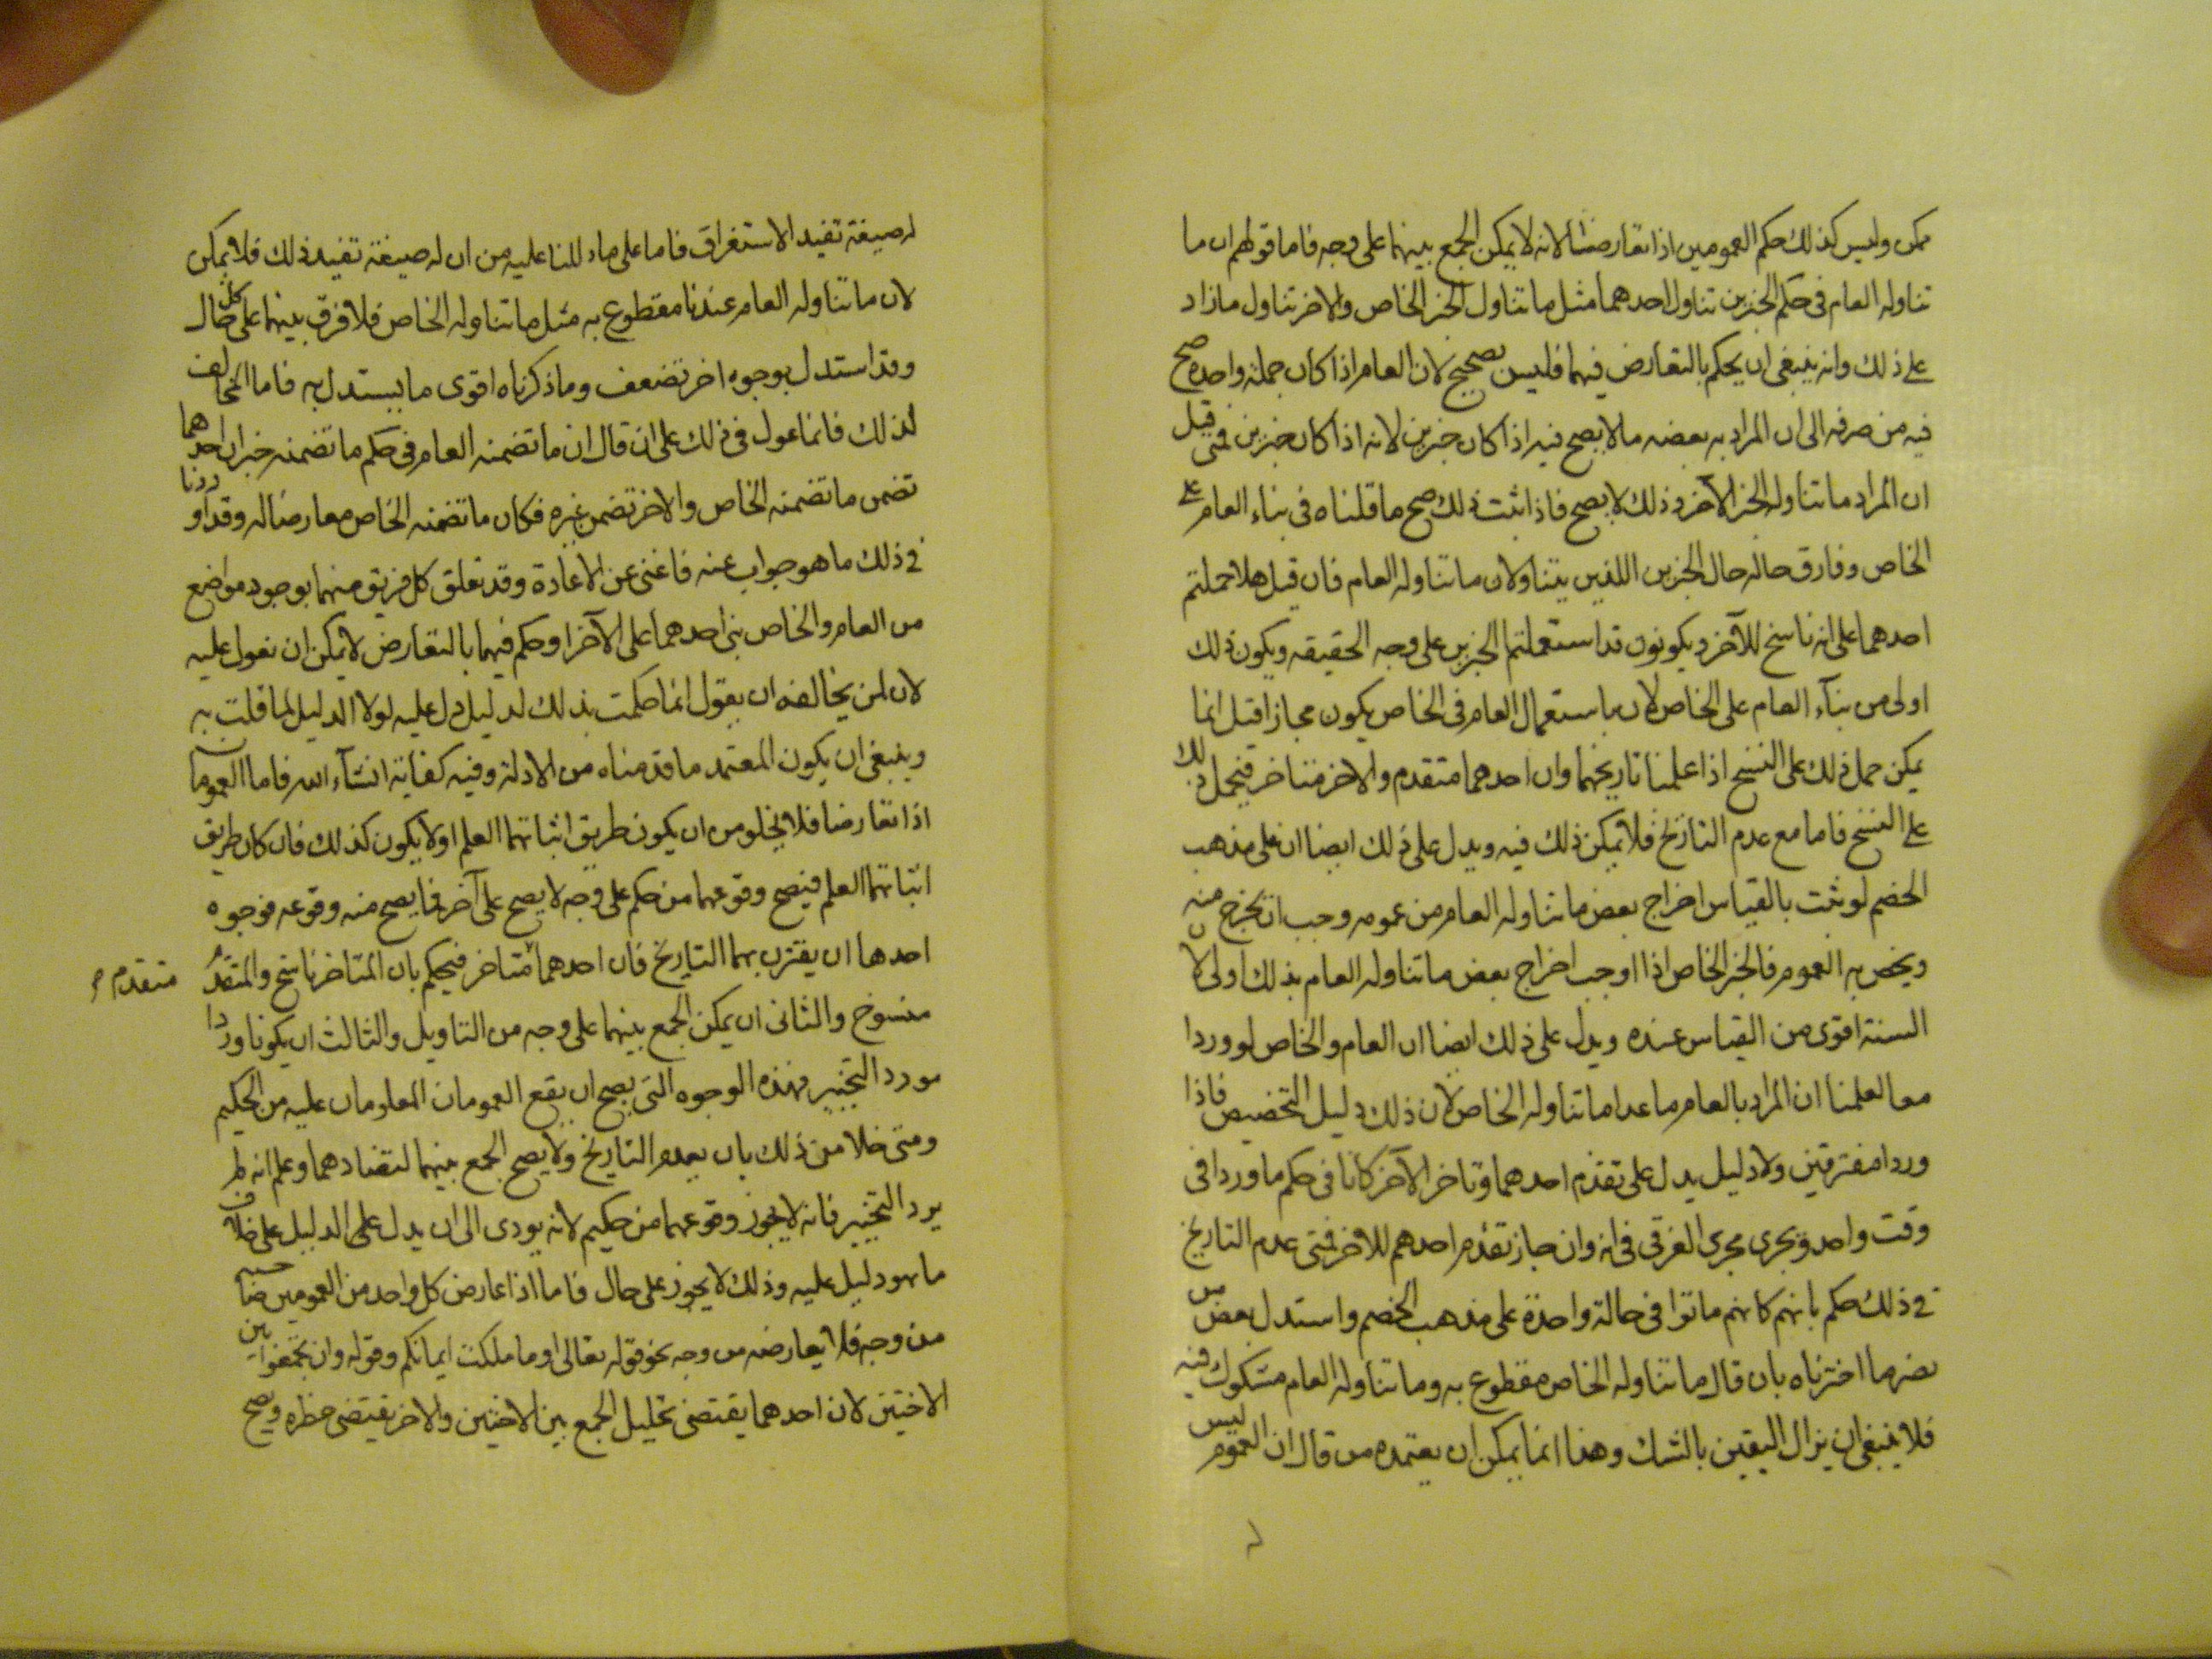 ممكن وليس كذلك حكم العمومين اذا تعارضا لانه لا يمكن الجمع بينهما على وجه فاما قولهم ان ما
تناوله العام في حكم الخبرين تناول احدهما مثل ما تناول الخبر الخاص والاخر تناول ما زاد
على ذلك وانه ينبغى ان يحكم بالتعارض فيهما فليس بصحيح لان العام اذا كان جملة واحدة صح
فيه من صرفه الى ان المراد به بعضه ما لا يصح فيه اذا كان خبرين لانه اذا كان خبرين فمتى قيل
ان المراد ما تناوله الخبر الآخر وذلك لا يصح فاذا ثبت ذلك صح ما قلناه في بناء العام على
الخاص وفارق حاله حال الخبرين اللذين يتناولان ما تناوله العام فان قيل هلا حملتم
احدهما على انه ناسخ للآخر ويكونون قد استعملتم الخبرين على وجه الحقيقه ويكون ذلك
اولى من بنآء العام على الخاص لان باستعمال العام في الخاص يكون مجازا قيل انما
يمكن حمل ذلك على النسخ اذا علمنا تاريخهما وان احدهما متقدم والاخر متاخر فيحمل ذلك
على النسخ فاما مع عدم التاريخ فلا يمكن ذلك فيه ويدل على ذلك ايضا ان على مذهب
الخصم لو ثبت بالقياس اخراج بعض ما تناوله العام من عمومه وجب ان يخرج منه
ويخص به العموم فالخبر الخاص اذا اوجب اخراج بعض ما تناوله العام بذلك اولى لان
السنة اقوى من القياس عنده ويدل على ذلك ايضا ان العام والخاص لو وردا
معا لعلمنا ان المراد بالعام ما عدا ما تناوله الخاص لان ذلك دليل التخصيص فاذا
وردا مفترقين ولا دليل يدل على تقدم احدهما وتاخر الآخر كانا في حكم ما وردا في
وقت واحد ويجرى مجرى الغرقى في انه وان جاز تقدم احدهم للاخر فمتى عدم التاريخ
في ذلك حكم بانهم كانهم ماتوا في حالة واحدة على مذهب الخصم واستدل بعض من
نصر ما اخترناه بان قال ما تناوله الخاص مقطوع به وما تناوله العام مشكوك فيه
فلا ينبغى ان يزال اليقين بالشك وهذا انما يمكن ان يعتمده من قال ان العموم ليس
له صيغة تفيد الاستغراق فاما على ما دللنا عليه من ان له صيغة تفيد ذلك فلا يمكن
لان ما تناوله العام عندنا مقطوع به مثل ما تناوله الخاص فلا فرق بينهما على كل حال
وقد استدل بوجوه اخر تضعف وما ذكرناه اقوى ما يستدل به فاما المخالف
لذلك فانما عول في ذلك على ان قال ان ما تضمنه العام في حكم ما تضمنه خبران احدهما
تضمن ما تضمنه الخاص والاخر تضمن غيره فكان ما تضمنه الخاص معارضا له وقد اوردنا
في ذلك ما هو جواب عنه فاغنى عن الاعادة وقد تعلق كل فريق منهما بوجود مواضع
من العام والخاص بنى احدهما على الآخر او حكم فيهما بالتعارض لا يمكن ان نعول عليه
لان لمن يخالفه ان يقول انما حكمت بذلك لدليل دل عليه لولا الدليل لما قلت به
وينبغى ان يكون المعتمد ما قدمناه من الادلة وفيه كفاية انشآء الله فاما العمومان
اذا تعارضا فلا يخلو من ان يكون طريق اثباتهما العلم او لا يكون كذلك فان كان طريق
اثباتهما العلم فيصح وقوعهما من حكم على وجه لا يصح على آخر فما يصح منه وقوعه فوجوه
احدها ان يقترن بهما التاريخ فان احدهما متاخر فيحكم بان المتاخر ناسخ والمتقدم
متقدم
منسوخ والثانى ان يمكن الجمع بينهما على وجه من التاويل والثالث ان يكونا وردا
مورد التخيير فهذه الوجوه التى يصح ان يقع العمومان المعلومان عليه من الحكيم
ومتى خلا من ذلك بان يعدم التاريخ ولا يصح الجمع بينهما لتضادهما وعلم انه لم
يرد التخيير فانه لا يجوز وقوعهما من حكيم لانه يودى الى ان يدل على الدليل على خلاف
ما هو دليل عليه وذلك لا يجوز على حال فاما اذا عارض كل واحد من العمومين صاحبه
من وجه فلا يعارضه من وجه نحو قوله تعالى او ما ملكت ايمانكم وقوله وان تجمعوا بين
الاختين لان احدهما يقتضى تحليل الجمع بين الاختين والاخر يقتضى حظره ويصح